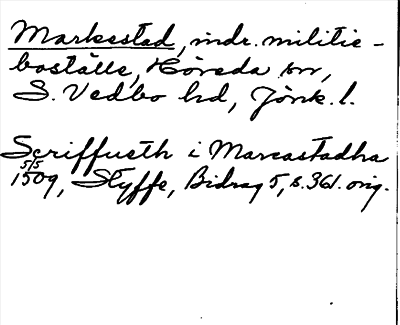 Markestad, indr. militie-
boställe, Höreda sn,
S. Vedbo hd, Jönk. l.
Scriffueth i Marcastadha
5/5
1509, Styffe, Bidrag 5, s. 361. orig.